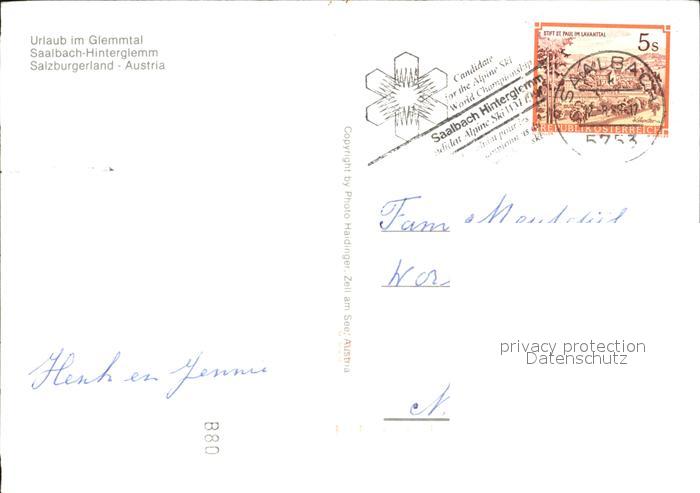 Urlaub im Glemmtal
Saalbach-Hinterglemm
Salzburgerland - Austria
STIFT ST. PAUL IM LAVANTTAL
5s
REPUBLIK ÖSTERREICH
SAALBACH
5753
Candidate
for the Alpine Ski
World Championship
Saalbach Hinterglemm
Alpine Ski WM
pour les
ski
Copyright by Photo Haidinger, Zell am See, Austria
Fam
Wor
N.
privacy protection
Datenschutz
Henk en Jennie
B80